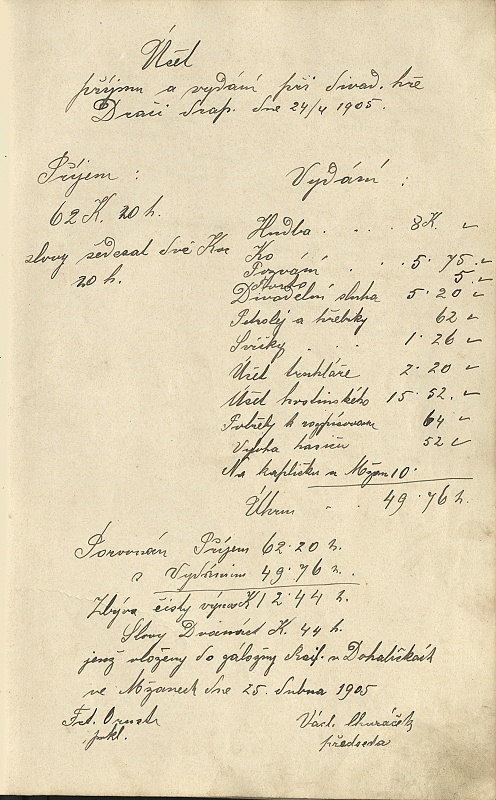 Účet
příjmu a vydání při divad. hře
Dračí drap. dne 24/4 1905.
Příjem :
62 K. 20 h.
slovy šedesat dvě Kor
20 h.
Vydání :
Hudba . . . 8 K. „
Ko
Pozvání . . 5 75 „
5. „
Divadelní sluha 5 20 „
Petrolej a hřebíky 62 „
Svíčky . . 1 26 „
Účet truhláře 2 20 „
Účet hostinského 15 52. „
Potřeby k rozpisovan 64 „
Vyloha hasiču 52 „
Na kapličku v Mžan 10
Úhrn . . 49 76 h.
Porovnán Příjem 62 20 h.
s Vydáním 49 76 h.
Zbývá čistý výnos K 12 44 h.
Slovy Dvanáct K. 44 h.
jenž vloženy do záložny Raif. v Dohaličkách
ve Mžanech dne 25. dubna 1905
Frt.
pokl.
Václ.
předseda